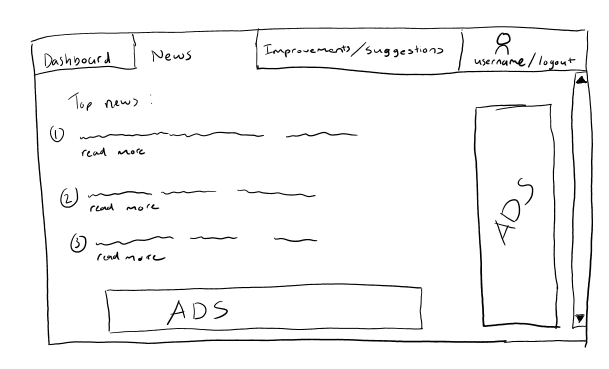 Dashboard
News
Improvements/suggestions
username/logout
Top news:
1
read more
2
read more
3
read more
ADS
ADS